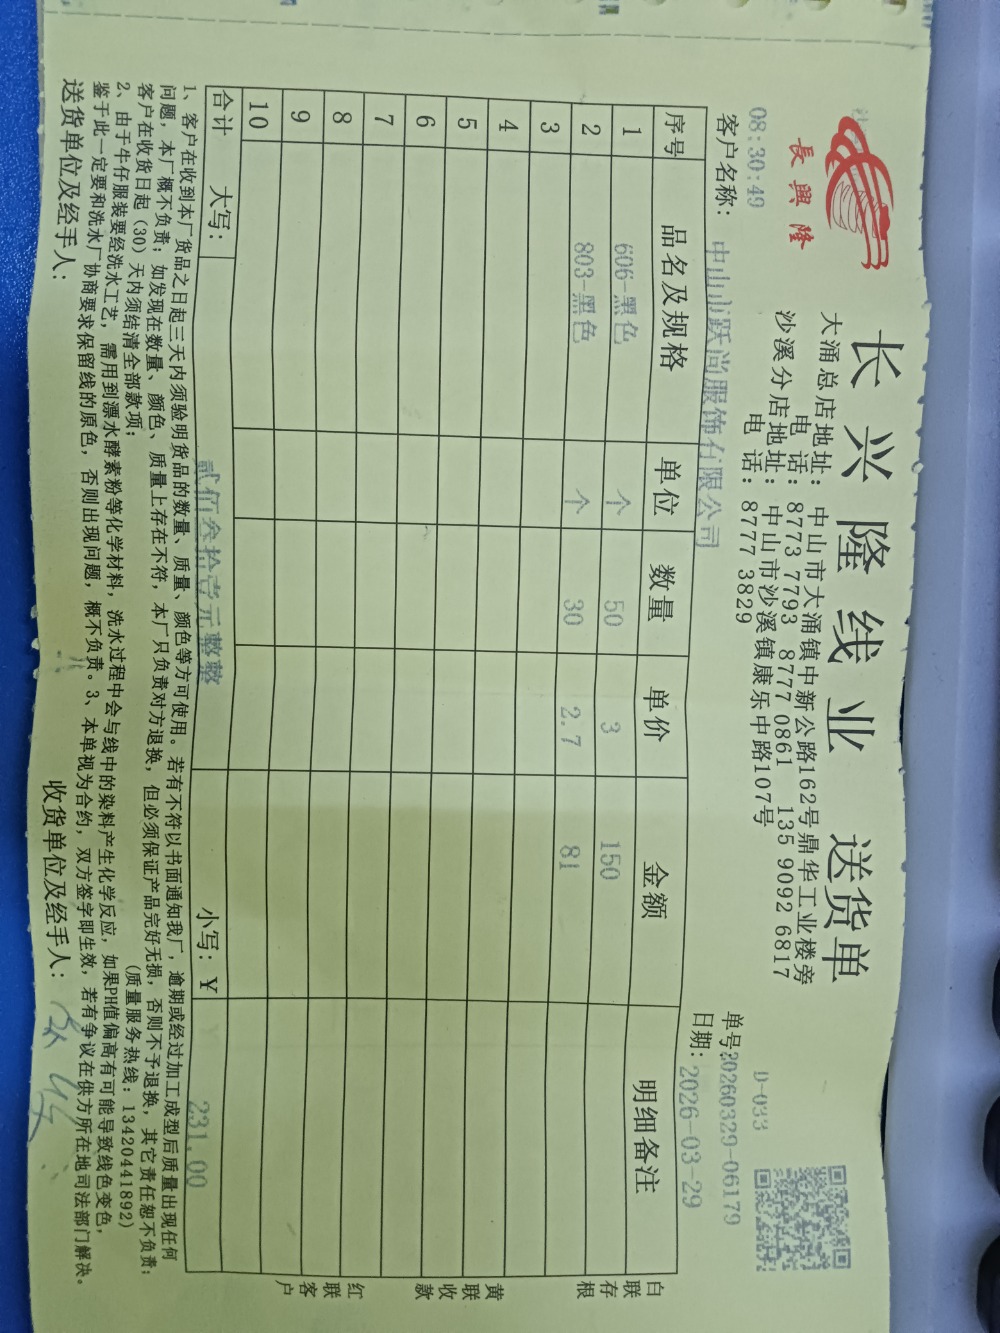 長興隆
长兴隆线业 送货单
大涌总店地址：中山市大涌镇中新公路162号鼎华工业楼旁
电 话：8773 7793 8777 0861 135 9092 6817
沙溪分店地址：中山市沙溪镇康乐中路107号
电 话：8777 3829
D-033
08:30:49
单号:20260329-06179
客户名称：中山市跃尚服饰有限公司
日期：2026-03-29
序号 品名及规格 单位 数量 单价 金额 明细备注
1 606-黑色 个 50 3 150
2 803-黑色 个 30 2.7 81
3
4
5
6
7
8
9
10
合计 大写：贰佰叁拾壹元整整 小写：￥ 231.00
白联存根
黄联收款
红联客户
1、客户在收到本厂货品之日起三天内须验明货品的数量、质量、颜色等方可使用。若有不符以书面通知我厂，逾期或经过加工成型后质量出现任何
问题，本厂概不负责；如发现在数量、颜色、质量上存在不符，本厂只负责对方退换，但必须保证产品完好无损，否则不予退换，其它责任恕不负责；
客户在收货日起（30）天内须结清全部款项； (质量服务热线：13420441892)
2、由于牛仔服装要经洗水工艺，需用到漂水酵素粉等化学材料，洗水过程中会与线中的染料产生化学反应，如果PH值偏高有可能导致线色变色，
鉴于此一定要和洗水厂协商要求保留线的原色，否则出现问题，概不负责。3、本单视为合约，双方签字即生效，若有争议在供方所在地司法部门解决。
送货单位及经手人：
收货单位及经手人：